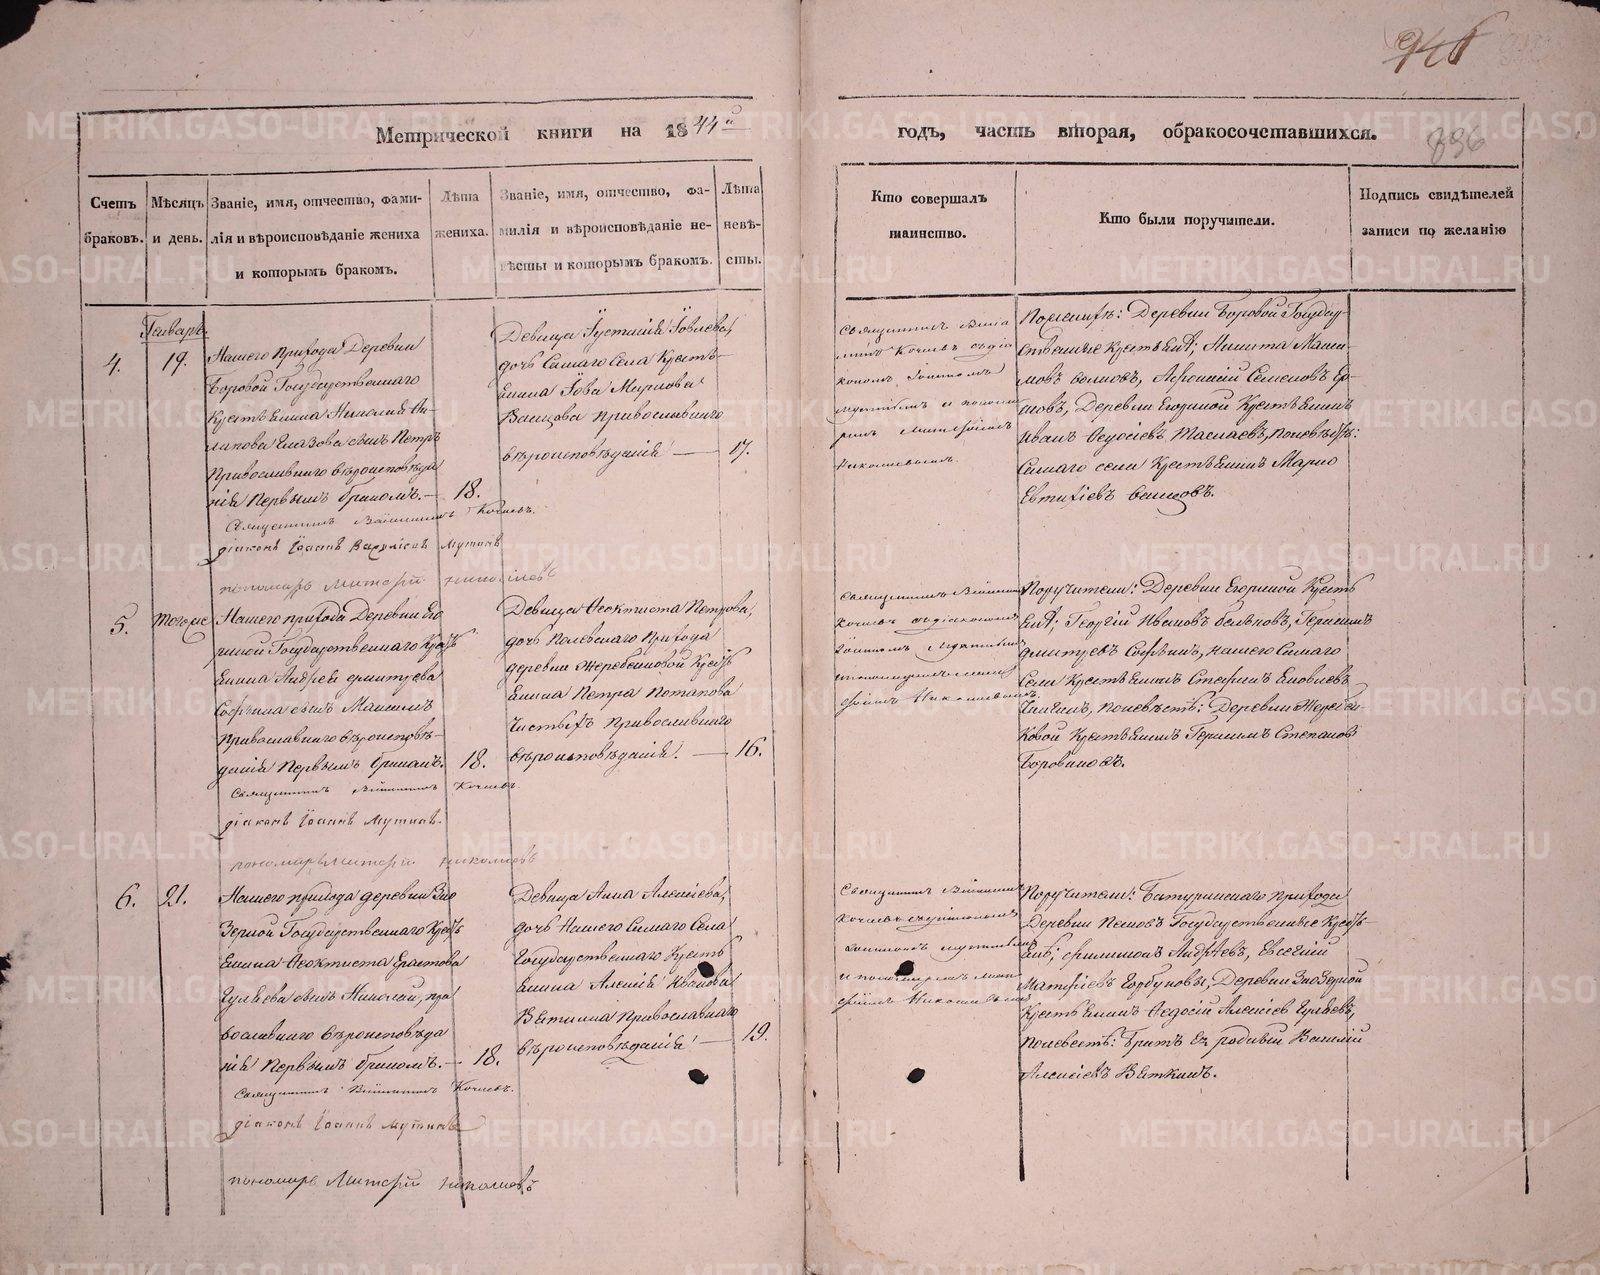 946
896
Метрической книги на 1844й годъ, часть вторая, обракосочетавшихся.
Счетъ браковъ.
Мѣсяцъ и день.
Званіе, имя, отчество, фами-
лія и вѣроисповѣданіе жениха
и которымъ бракомъ.
Лѣта
жениха.
Званіе, имя, отчество, фа-
милія и вѣроисповѣданіе не-
вѣсты и которымъ бракомъ.
Лѣта
невѣ-
сты.
Кто совершалъ
таинство.
Кто были поручители.
Подпись свидѣтелей
записи по желанію
Генварь
4.
19.
Нашего прихода Деревни
Боровой Государственнаго
Крестьянина Николая
сынъ Петръ
Православнаго вѣроисповѣда
нія Первымъ бракомъ. — 18.
Священникъ Кочневъ.
діаконъ Іоаннъ Мутинъ
пономарь Николаевъ
Девица Іустинія Іовлева,
дочь Самаго Села Кресть-
янина Іова Миронова
Ванцова православнаго
вѣроисповѣданія — 17.
Священникъ
Кочневъ съ діа
кономъ Іоанномъ
Мутинымъ и понома
ремъ
Николаевымъ.
По женихѣ: Деревни Боровой Государ-
ственные крестьяне; Никита Макси-
мовъ Волковъ, Афонасій Семеновъ
Деревни Егориной Крестьянинъ
Иванъ Федосіевъ по невѣстѣ:
Самаго села Крестьянинъ Марко
Евтихіевъ Ванцовъ.
5.
тогоже
Нашего прихода Деревни Его
риной Государственнаго Кресть
янина Андрея Дмитріева
сынъ Максимъ
Православнаго вѣроисповѣ-
данія Первымъ бракомъ. 18.
Священникъ Кочневъ.
діаконъ Іоаннъ Мутинъ.
пономарь Николаевъ
Девица Феоктиста Петрова,
дочь Полевскаго Прихода
деревни Жеребенковой Кресть
янина Петра Потапова
Чистыхъ Православнаго
вѣроисповѣданія. — 16.
Священникъ
Кочневъ съ діакономъ
Іоанномъ Мутинымъ
Николаевымъ.
Поручители: Деревни Егориной Кресть
яне; Георгій Ивановъ Герасимъ
Дмитріевъ нашего Самаго
Села Крестьянинъ Стефанъ Яковлевъ
по невѣстѣ: Деревни Жеребен-
ковой Крестьянинъ Герасимъ Степановъ
Боровиковъ.
6.
21.
Нашего прихода деревни Зао
зерной Государственнаго Кресть
янина Феоктиста Ерастова
Гуляева сынъ Николай, пра
вославнаго вѣроисповѣда
нія Первымъ бракомъ. — 18.
Священникъ Кочневъ.
діаконъ Іоаннъ Мутинъ
пономарь Николаевъ
Девица Анна Алексіева,
дочь Нашего Самаго Села
Государственнаго Кресть
янина Алексія Иванова
Вяткина Православнаго
вѣроисповѣданія — 19.
Священникъ
Кочневъ съ діакономъ
Іоанномъ Мутинымъ
и пономаремъ
Николаевымъ
Поручители: Батуринскаго прихода
Деревни Государственные Кресть-
яне; Филимонъ Андреевъ, Евсевій
Матфіевъ Горбуновы, Деревни Заозерной
Крестьянинъ Федосій Алексіевъ Гуляевъ,
По невестѣ: Братъ ея родный Василій
Алексіевъ Вяткинъ.
METRIKI.GASO-URAL.RU